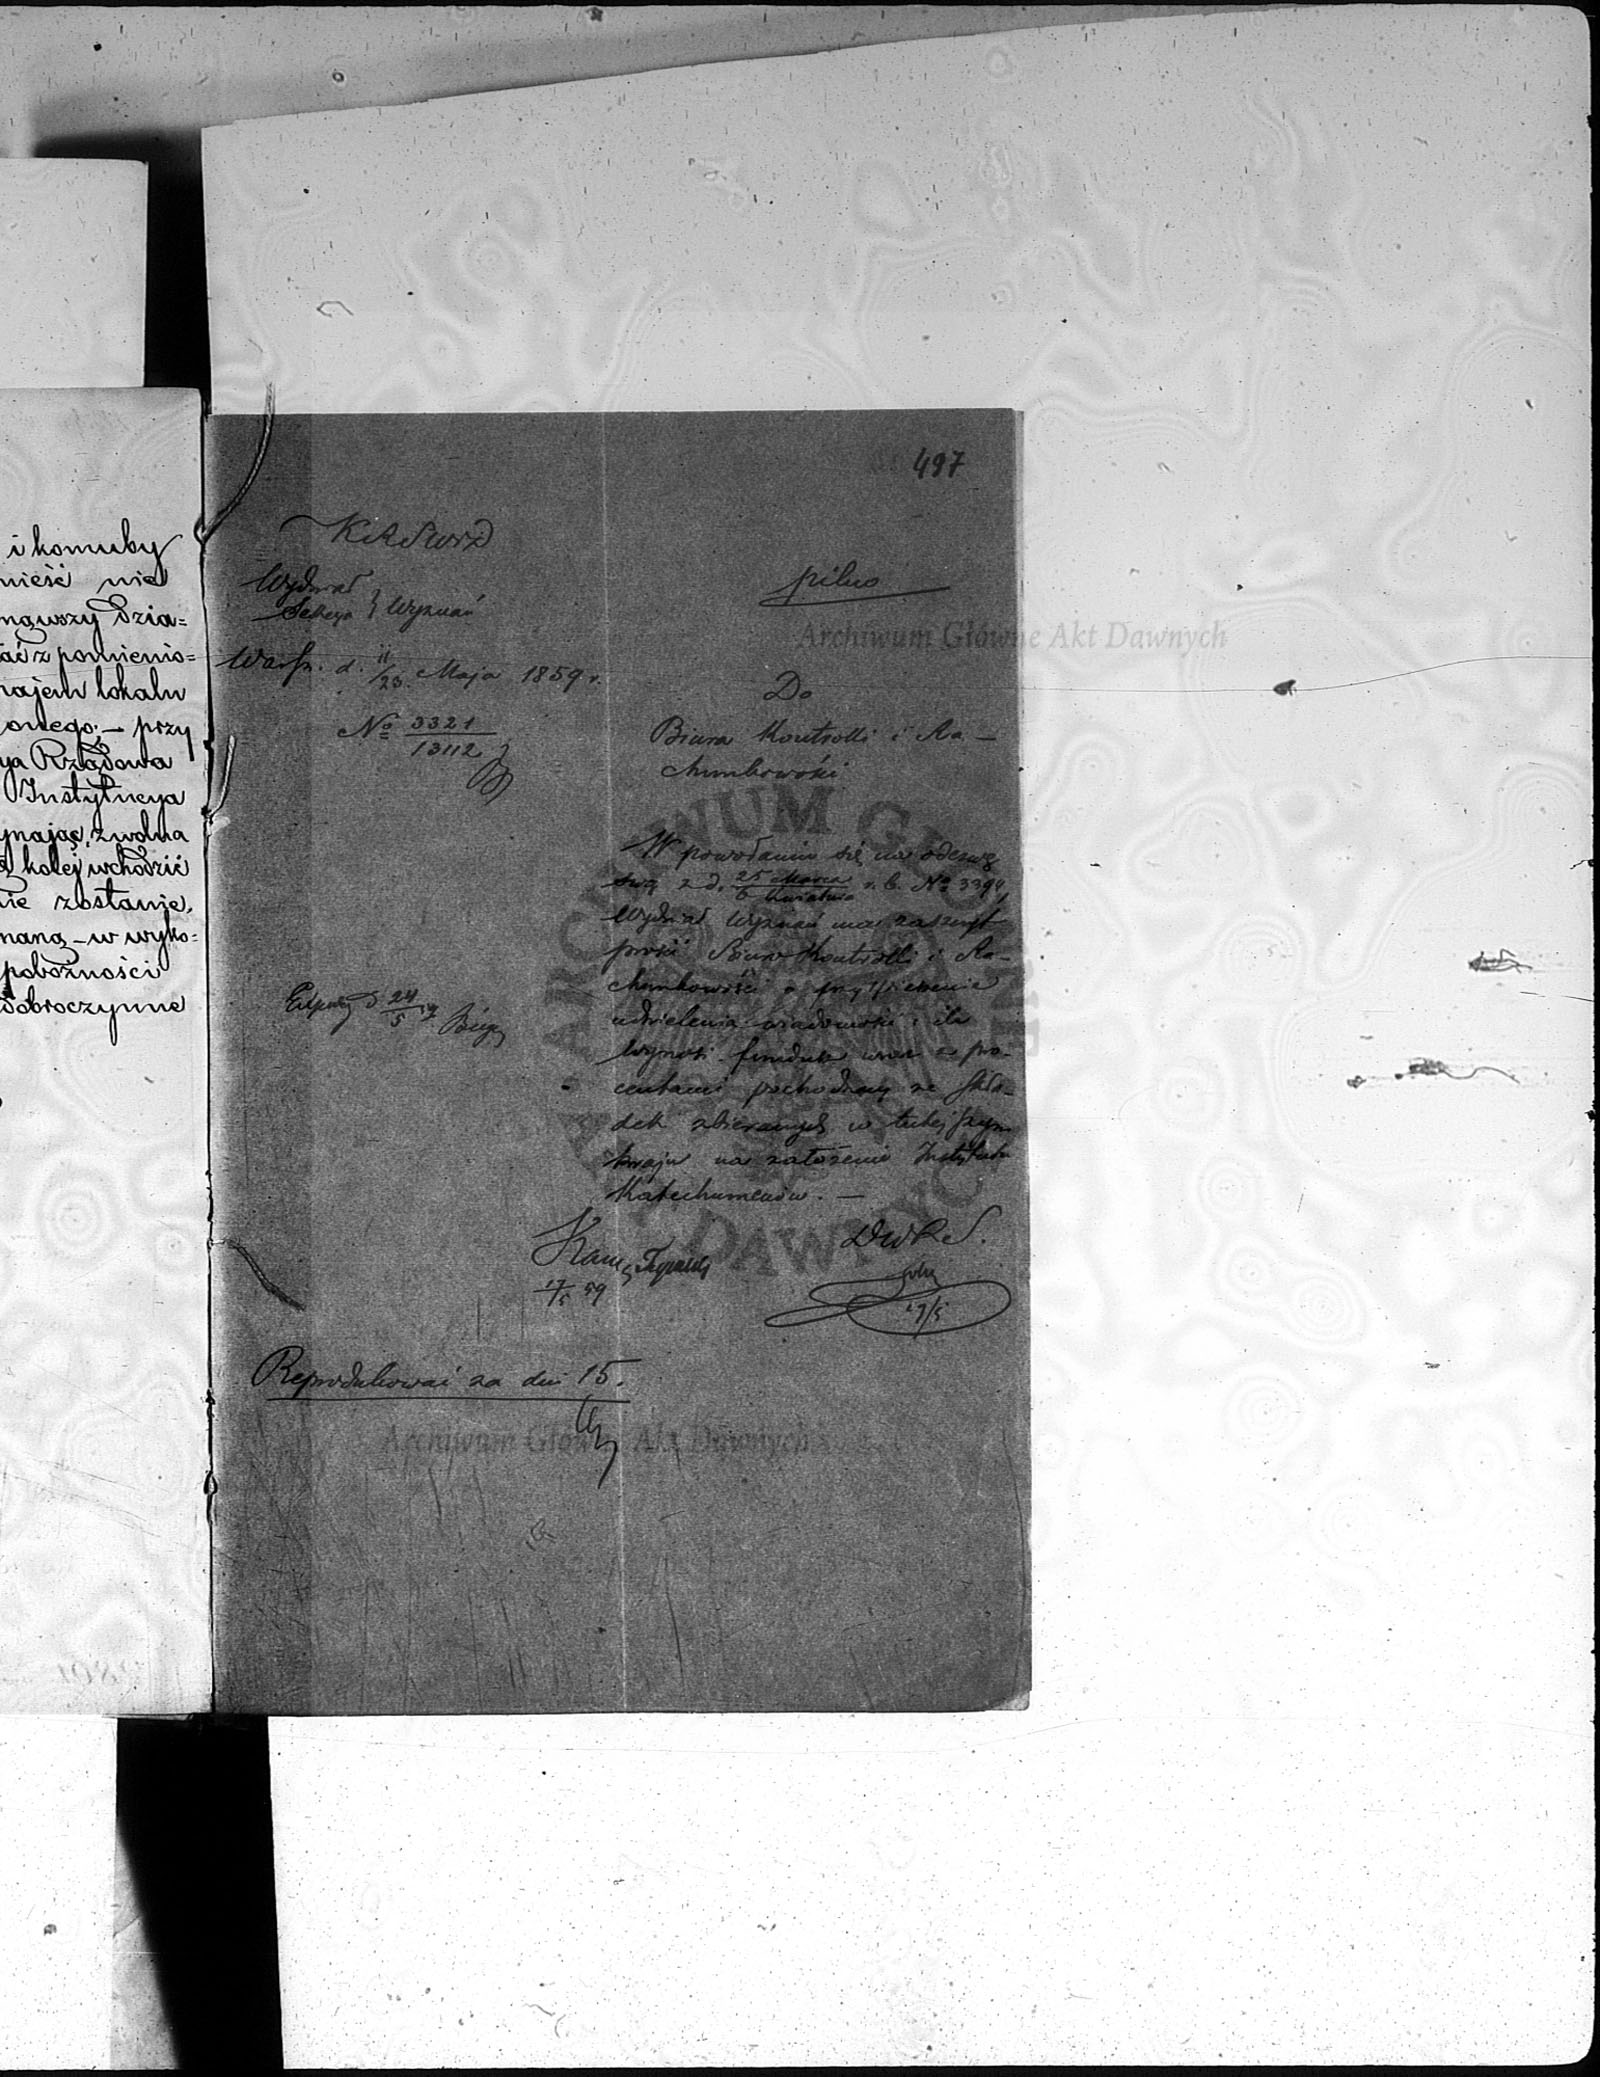 i komuby
nieść nie
nąwszy dzia=
ać z pomienio=
najem lokalu
onego; — przy
ya Rządowa
Instytucya
ynając, zwolna
kolej wchodzić
nie zostanie,
naną — w wyko=
pobożności
dobroczynne
497
KRSWD
Wydział
Sekcya } Wyznań
Warsz. d. 11/23 Maja 1859 r.
No 3321/13112
Exped d 24/5
pilno
Do
Biura Kontrolli i Ra—
chunkowości
W powołaniu się na odezwę
swą z d. 25 Marca/6 Kwietnia r. b. No 3394,
Wydział Wyznań ma zaszczyt
prosić Biuro Kontrolli i Ra—
chunkowości o przyspieszenie
udzielenia wiadomości: ile
wynosi fundusz wraz z pro-
centami pochodzący ze skła-
dek zbieranych w tutejszym
kraju na założenie Instytutu
Katechumenów. —
DWRS.
17/5
17/5 59
Reprodukować za dni 15.
Archiwum Główne Akt Dawnych
ARCHIWUM GŁÓWNE AKT DAWNYCH
Archiwum Główne Akt Dawnych